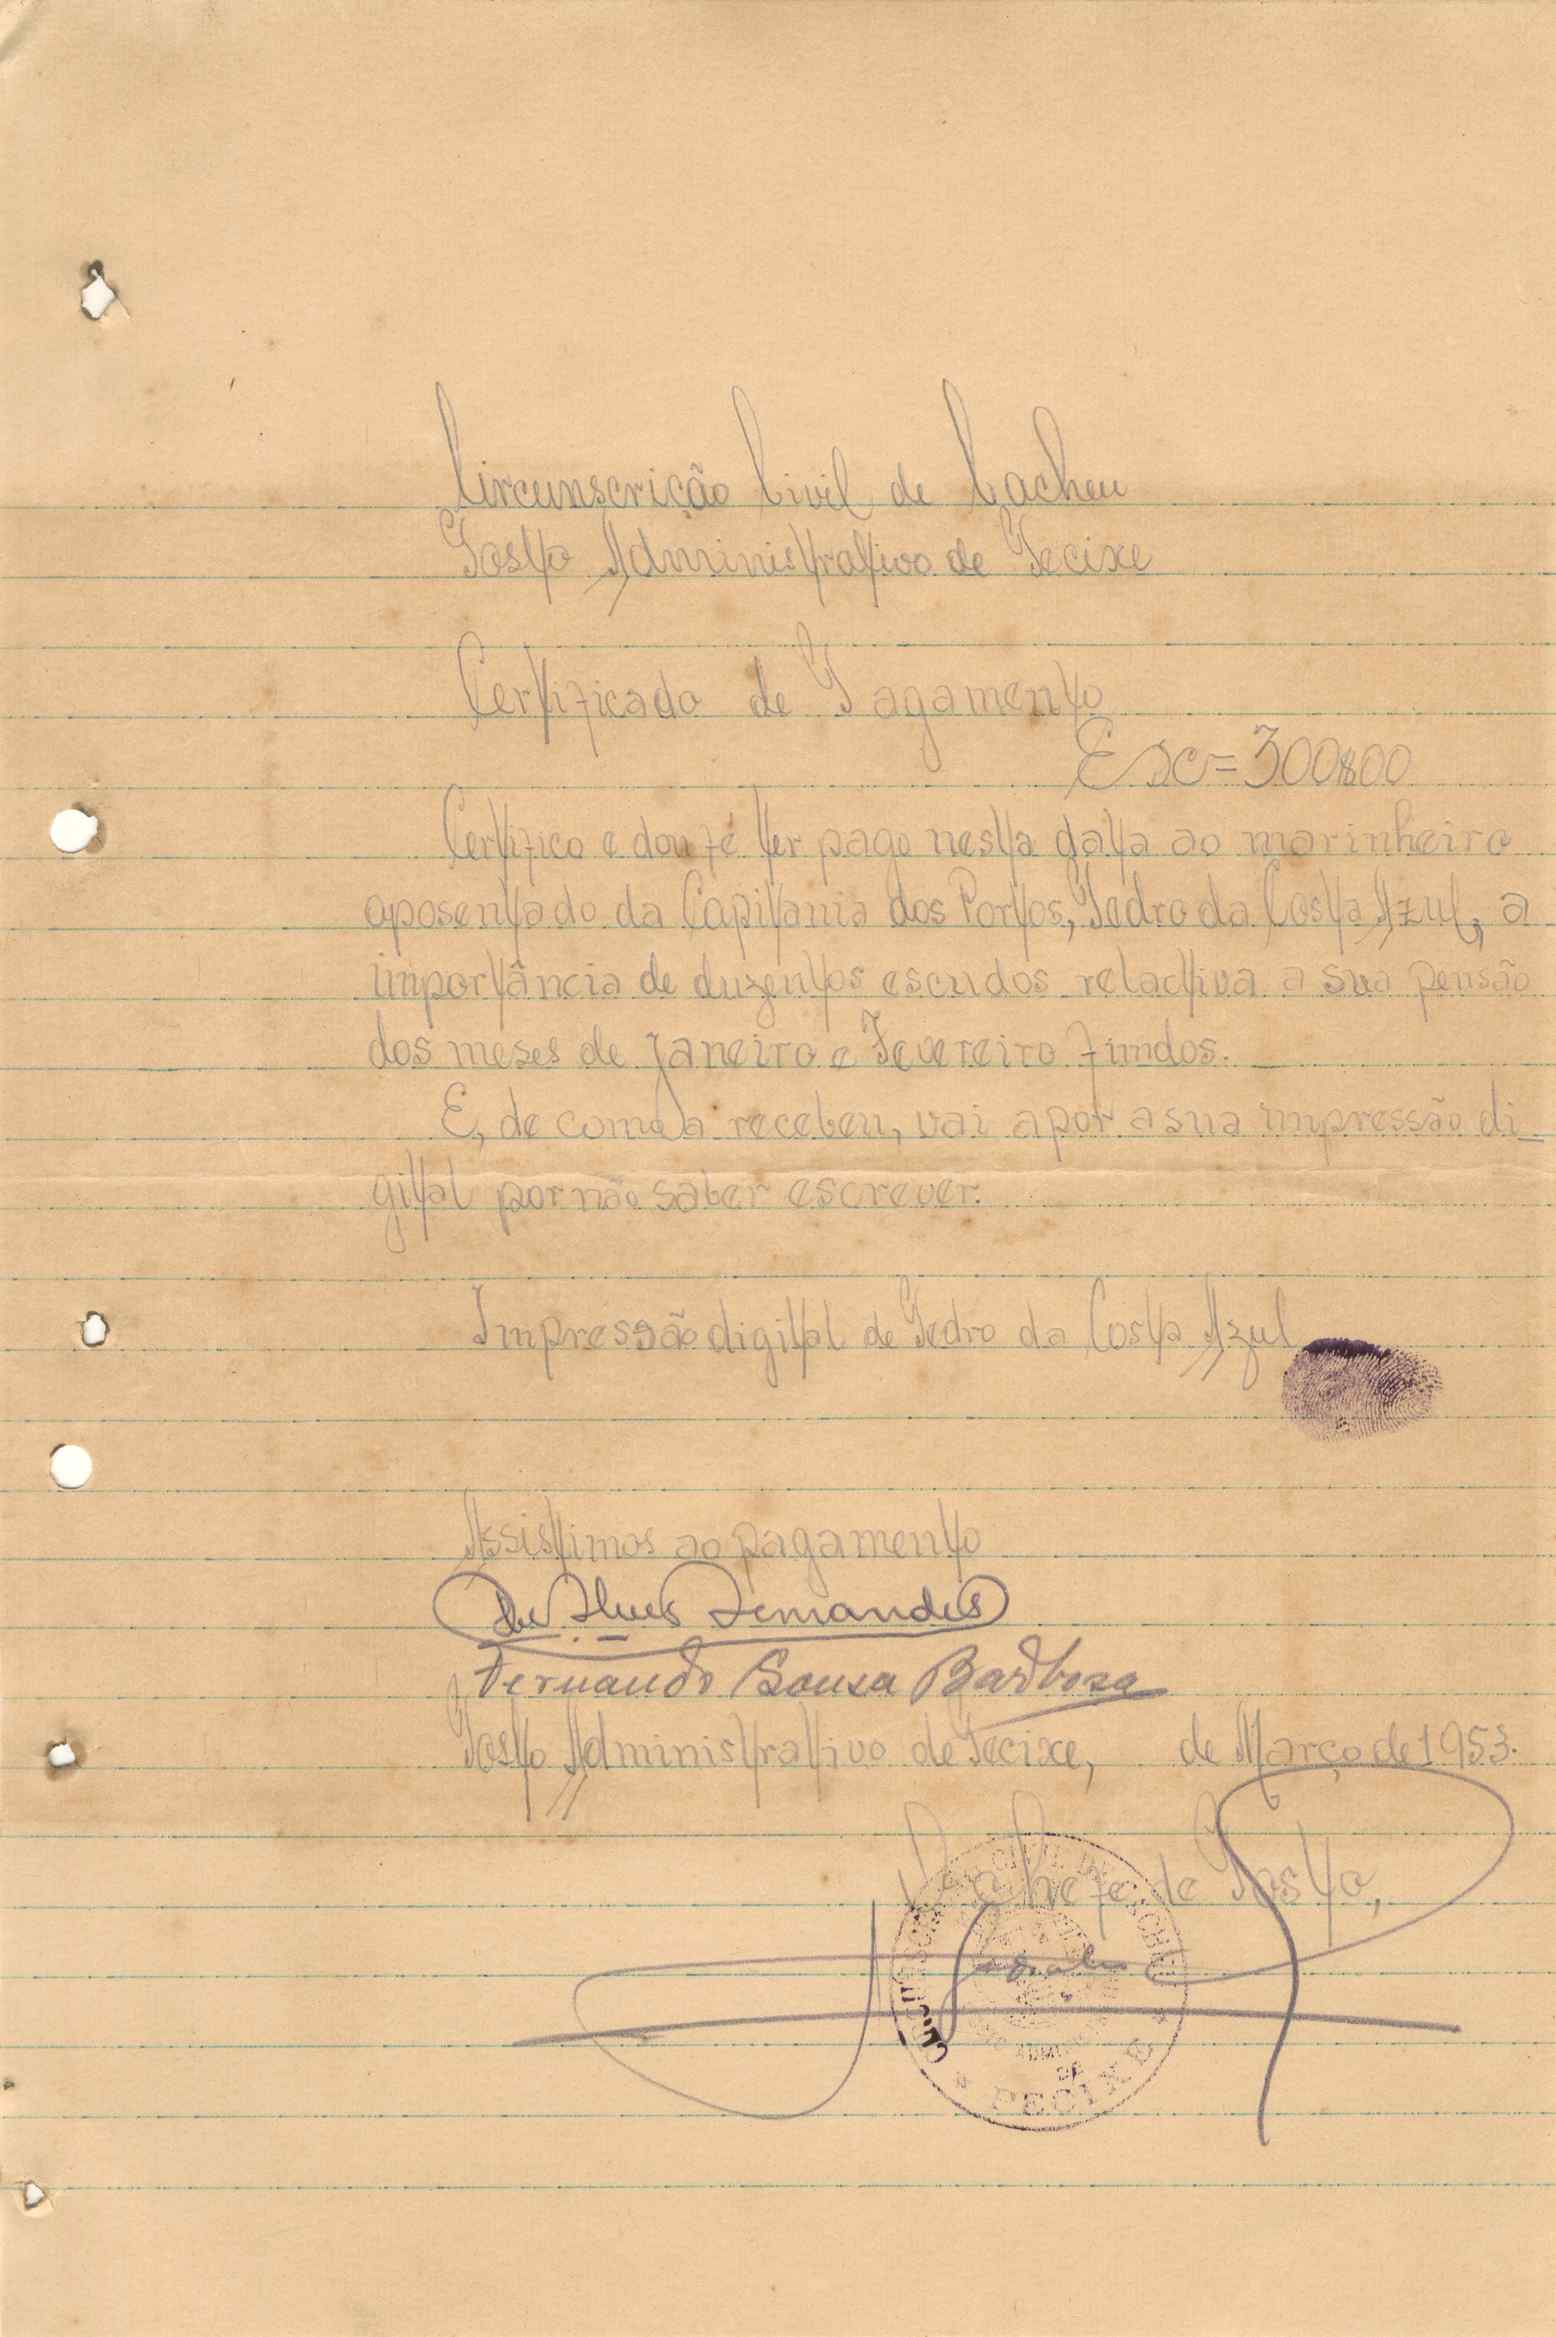 Circunscrição Civil de Cacheu
Posto Administrativo de Pecixe
Certificado de Pagamento
Esc = 300$00
Certifico e dou fé ter pago nesta data ao marinheiro
aposentado da Capitania dos Portos, Pedro da Costa Azul, a
importância de duzentos escudos relactiva a sua pensão
dos meses de Janeiro e Fevereiro findos.
E, de como a recebeu, vai apor a sua impressão di-
gital por não saber escrever.
Impressão digital de Pedro da Costa Azul
Assistimos ao pagamento
Alves Fernandes
Fernando Sousa Barbosa
Posto Administrativo de Pecixe, de Março de 1953.
O Chefe de Posto,
PECIXE